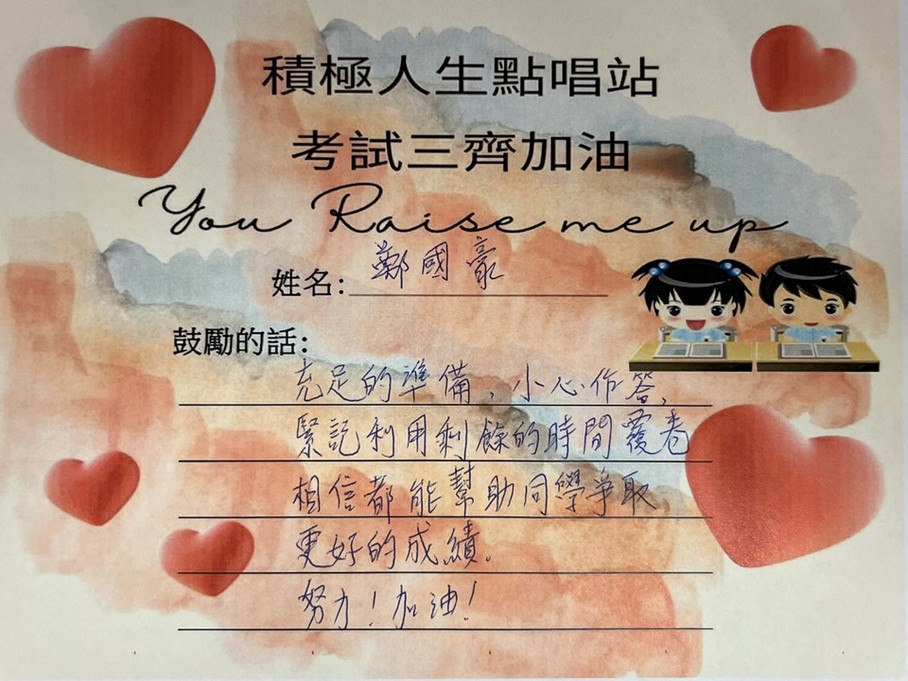 積極人生點唱站
考試三齊加油
You Raise me up
姓名：鄭國豪
鼓勵的話：
充足的準備，小心作答，
緊記利用剩餘的時間覆卷
相信都能幫助同學爭取
更好的成績。
努力！加油！